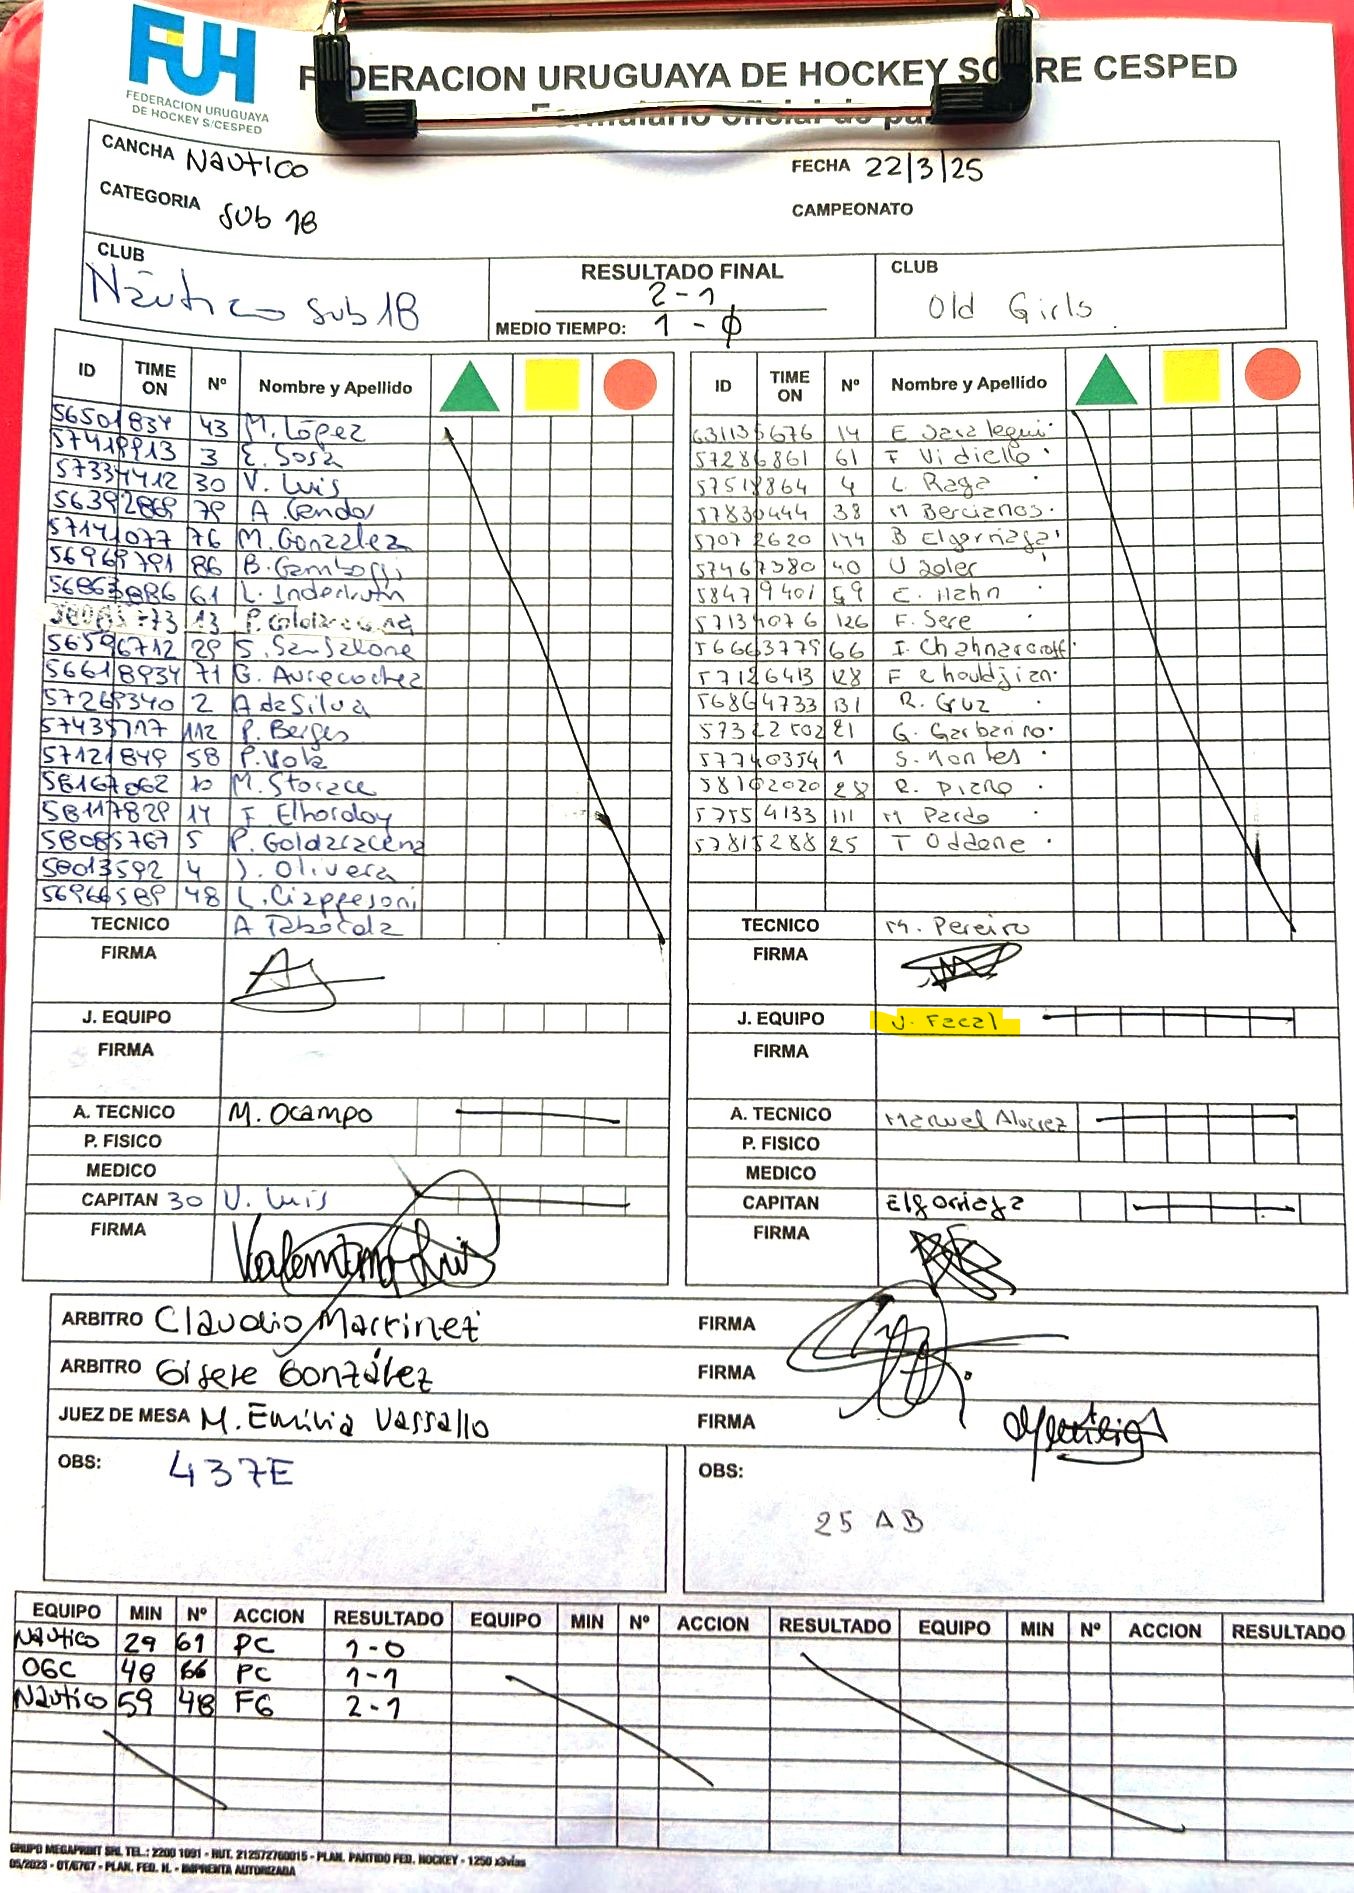 FUH
FEDERACION URUGUAYA
DE HOCKEY S/CESPED
FEDERACION URUGUAYA DE HOCKEY SOBRE CESPED
CANCHA Nautico
FECHA 22/3/25
CATEGORIA Sub 18
CAMPEONATO
CLUB Náutico sub 18
RESULTADO FINAL 2-1
MEDIO TIEMPO: 1 - 0
CLUB Old Girls
ID TIME ON Nº Nombre y Apellido
56501834 43 M. López
57418913 3 E. Sosa
57334412 30 V. Luis
56392869 79 A. Cendoi
57141077 76 M. Gonzalez
56969791 86 B. Gambogi
56863886 61 L. Inderkuth
13 P. Goldaracena
56596712 29 S. SanSalone
56618934 71 G. Aurecochea
57269340 2 A da Silva
57435717 112 P. Berges
57121849 58 P. Viola
58167062 10 M. Storace
58117829 14 F. Elhordoy
58085767 5 P. Goldaracena
58013592 4 J. Olivera
56966589 48 L. Ciappesoni
TECNICO A Taborda
FIRMA
J. EQUIPO
FIRMA
A. TECNICO M. Ocampo
P. FISICO
MEDICO
CAPITAN 30 V. Luis
FIRMA Valentina Luis
ID TIME ON Nº Nombre y Apellido
63113676 14 E Saralegui
57286861 61 F Vidiello
57518864 4 L Raga
57830444 38 M Bercianos
57072620 144 B Elgorriaga
57467380 40 J Soler
58479401 59 C. Hahn
57134076 126 F. Sere
56663779 66 I. Chahnazaroff
57126413 128 F Chouldjian
56864733 131 R. Cruz
57322502 21 G. Garbarino
57740354 1 S. Montes
58102020 28 R. Piano
57554133 111 M Pardo
57815288 25 T Oddone
TECNICO M. Pereiro
FIRMA
J. EQUIPO J. Facal
FIRMA
A. TECNICO Manuel Alvarez
P. FISICO
MEDICO
CAPITAN Elgorriaga
FIRMA
ARBITRO Claudio Martinez FIRMA
ARBITRO Gisele González FIRMA
JUEZ DE MESA M. Emilia Vassallo FIRMA
OBS: 437E
OBS: 25 AB
EQUIPO MIN Nº ACCION RESULTADO EQUIPO MIN Nº ACCION RESULTADO EQUIPO MIN Nº ACCION RESULTADO
Nautico 29 61 PC 1-0
OGC 48 66 PC 1-1
Nautico 59 48 FG 2-1
GRUPO MEGAPRINT SRL TEL.: 2200 1091 - RUT. 212572760015 - PLAN. PARTIDO FED. HOCKEY - 1250 x3vías
05/2023 - 01/6767 - PLAN. FED. H. - IMPRENTA AUTORIZADA